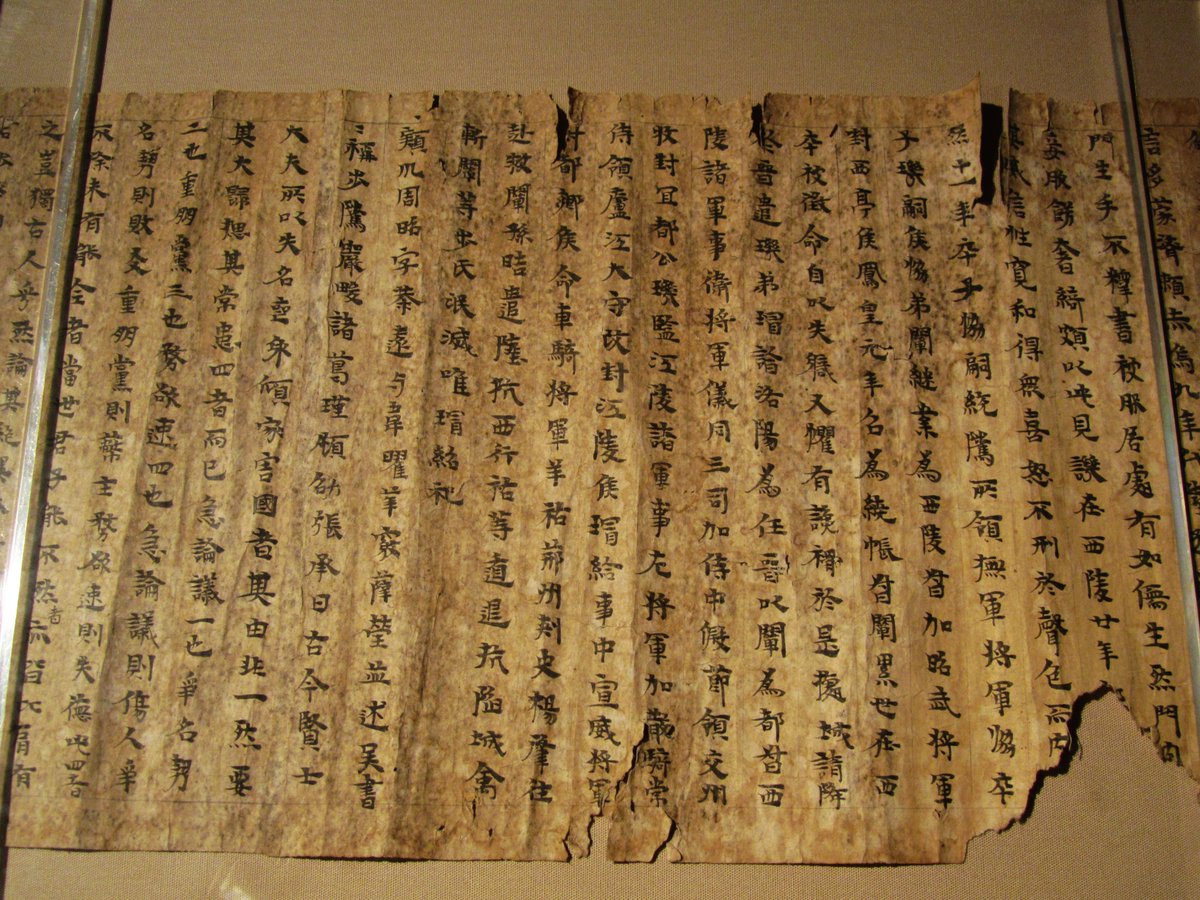 言多蒙濟賴赤烏九年代陸
門生手不釋書被服居處有如儒生然門內
妻妾服餝奢綺頗以此見譏在西陵廿年
其威信性寬和得無喜怒不形於聲色而內
然十一年卒子協嗣統騭所領撫軍將軍協卒
子璣嗣侯協弟闡継業為西陵督加昭武將軍
封西亭侯鳳皇元年召為繞帳督闡累世在西
卒被徵命自以失職又懼有讒禍於是據城請降
晉遣璣弟璿詣洛陽為任晉以闡為都督西
陵諸軍事衛將軍儀同三司加侍中假節領交州
牧封宜都公璣監江陵諸軍事左將軍加散騎常
侍領廬江大守改封江陵侯璿給事中宣威將軍
封都鄉侯命車騎將軍羊祜荊州刾史楊肇往
赴救闡孫晧遣陸抗西行祜等遁退抗陷城禽
斬闡等步氏泯滅唯璿紹祀
潁川周昭字恭遠与韋曜華覈薛瑩並述吴書
稱步騭嚴畯諸葛瑾顧劭張承曰古今賢士
大夫所以失名喪身傾家害國者其由非一然要
其大歸揔其常患四者而已急論議一也爭名勢
二也重朋黨三也務欲速四也急論議則傷人爭
名勢則敗友重朋黨則蔽主務欲速則失德此四者
不除未有能全者當世君子能不然者亦皆比肩有
之豈獨古人乎然論其絕異